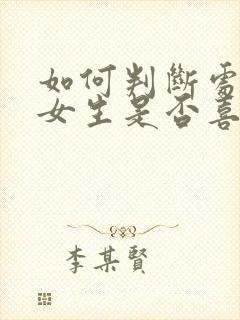 如何判斷
女生是否喜
李某賢